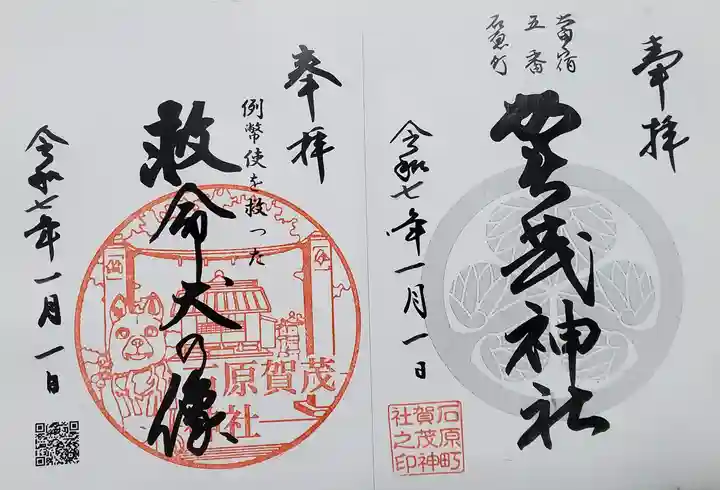 奉拝
五番
石原町
賀茂神社
令和七年一月一日
石原町
賀茂神
社之印
奉拝
例幣使を救った
救命犬の像
令和七年一月一日
石原賀茂
神社